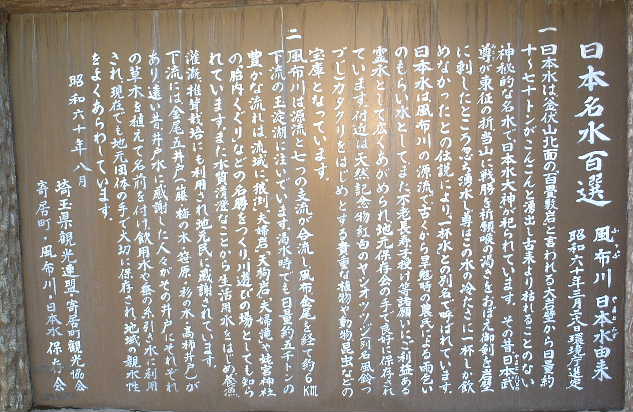 日本名水百選
風布川 日本水由来
昭和六十年三月二八日環境庁選定
一 日本水は釜伏山北面の百畳敷岩と言われる大岩壁から日量約
十〜七十トンがこんこんと湧出し古来より枯れることのない
神秘的な名水で日本水大神が祀られています。その昔日本武
尊が東征の折当山に戦勝を祈願喉の渇きをおぼえ御剣を岩壁
に刺したところ忽ち湧水し尊はこの水の冷たさに一杯しか飲
めなかったとの伝説により一杯水との別名で呼ばれています。
日本水は風布川の源流で古くから旱魃時の農民による雨乞い
のもらい水としてまた不老長寿子授け等諸願いにご利益ある
霊水として広くあがめられ地元保存会の手で良好に保存され
ています。付近は天然記念物紅白のヤシオツツジ別名風鈴つ
つじカタクリをはじめとする貴重な植物や動物昆虫などの
宝庫となっています。
二 風布川は源流と七つの支流が合流し風布金尾を経て約6㎞
下流の玉淀湖に注いでいます。渇水時でも日量約五千トンの
豊かな流れは流域に狼渕、夫婦岩、天狗岩、夫婦滝や姥宮神社
の胎内くぐりなどの名勝をつくり川遊びの場としても知ら
れています。また水質清澄なことから生活用水をはじめ養魚
灌漑椎茸栽培にも利用され地元民に感謝されています。
下流には金尾五井戸(藤、梅の木、笹原、杉の木、高柿井戸)が
あり遠い昔井戸水に感謝した人々がその井戸にそれぞれ
の草木を植えて名前を付け飲用水や蚕の糸引き水に利用
され、現在でも地元団体の手で大切に保存され、地域の親水性
をよくあらわしています。
昭和六十年八月
埼玉県観光連盟・寄居町観光協会
寄居町・風布川・日本水保存会